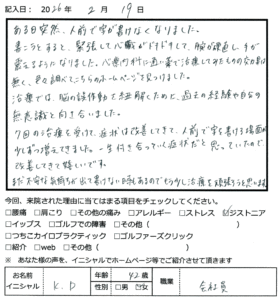 記入日： 2026年 2月 19日
ある日突然、人前で字が書けなくなりました。
書こうとすると、緊張して心臓がドキドキして、腕が硬直し、手が
震えるようになりました。心療内科に通い薬で治療してみたものの効果は
無く、色々調べてこちらのホームページを見つけました。
治療では、脳の誤作動を紐解くためと、過去の経験や自分の
無意識と向き合いました。
7回の治療を受けて、症状は改善してきて、人前で字を書ける場面が
少しずつ増えてきました。一生付き合っていく症状だと思っていたので、
改善してきて嬉しいです。
まだ不安な気持ちが出て書けない時もあるのでもう少し治療を頑張ろうと思います
今回、来院された理由に当てはまる項目をチェックしてください。
□腰痛 □肩こり □その他の痛み □アレルギー □ストレス ☑ジストニア
□イップス □ゴルフでの障害 □その他（ ）
□つちこカイロプラクティック □ゴルファーズクリック
□紹介 □web □その他（ ）
※ あなた様の声を、イニシャルでホームページ等でご紹介させて頂きます
お名前 イニシャル K.D 年齢 42歳 性別 □男 □女 職業 会社員